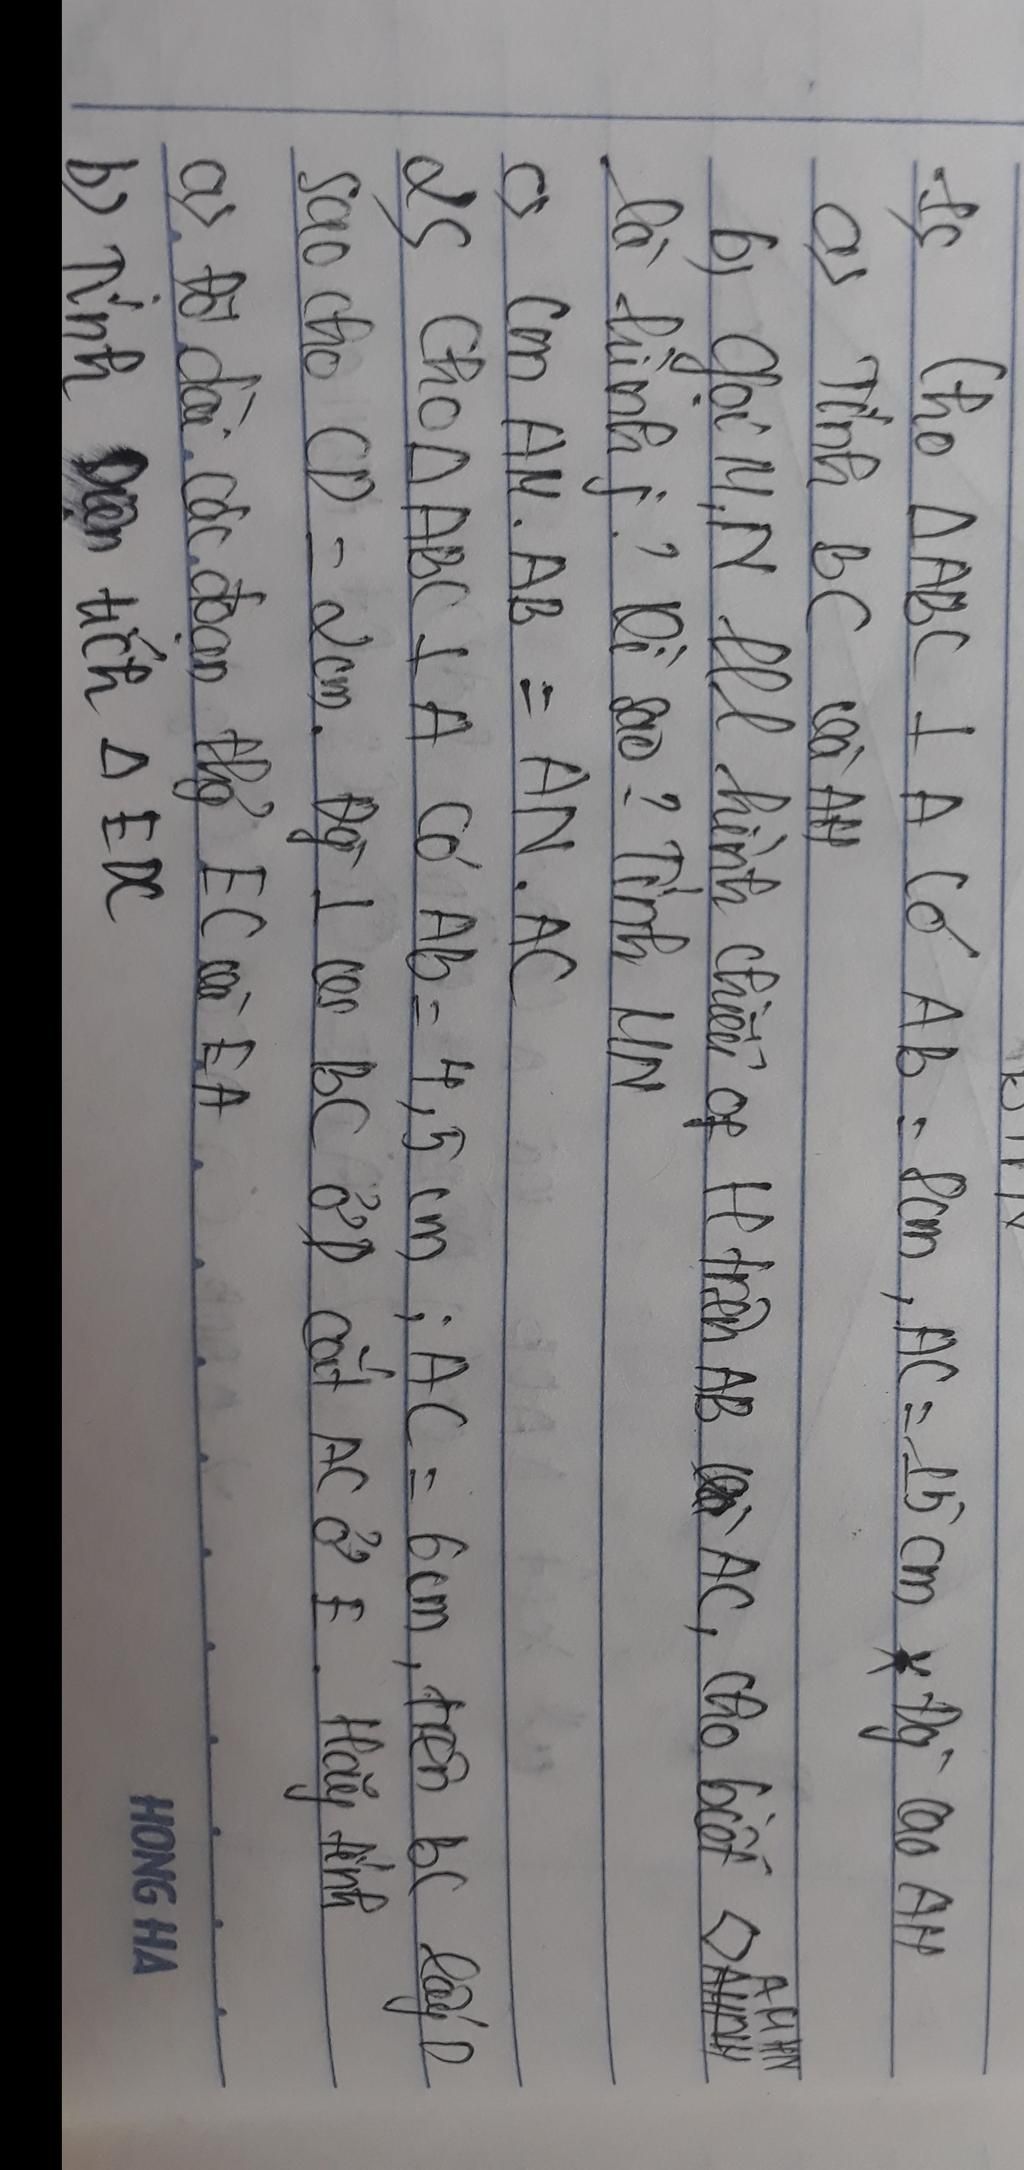 1, Cho Δ ABC ⊥ A có AB = 8cm, AC = 15cm * Đg cao AH
a, Tính BC và AH
b, Gọi M, N lll hình chiếu of H trên AB và AC, cho biết ◇ AMHN
là hình j? Vì sao? Tính MN
c, Cm AM.AB = AN.AC
2, Cho Δ ABC ⊥ A có AB = 4,5 cm ; AC = 6cm, trên BC lấy D
Sao cho CD = 2cm. Đg ⊥ BC ở D cắt AC ở E. Hãy tính
a, Độ dài các đoạn thg EC và EA
b, Tính Diện tích Δ EDC
HONG HA